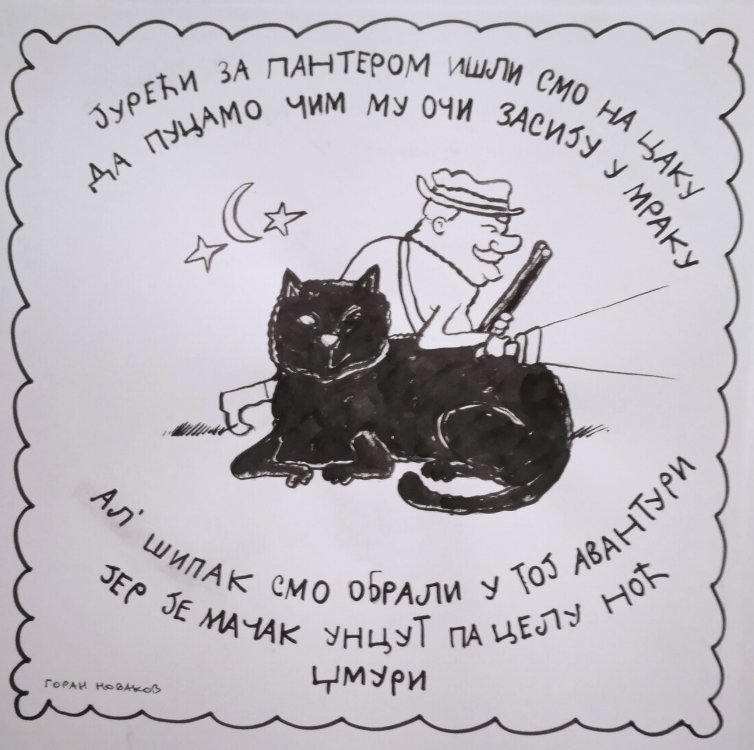 ЈУРЕЋИ ЗА ПАНТЕРОМ ИШЛИ СМО НА ЦАКУ
ДА ПУЦАМО ЧИМ МУ ОЧИ ЗАСИЈУ У МРАКУ
АЛ' ШИПАК СМО ОБРАЛИ У ТОЈ АВАНТУРИ
ЈЕР ЈЕ МАЧАК УНЦУТ ПА ЦЕЛУ НОЋ
ЏМУРИ
ГОРАН НОВАКОВ